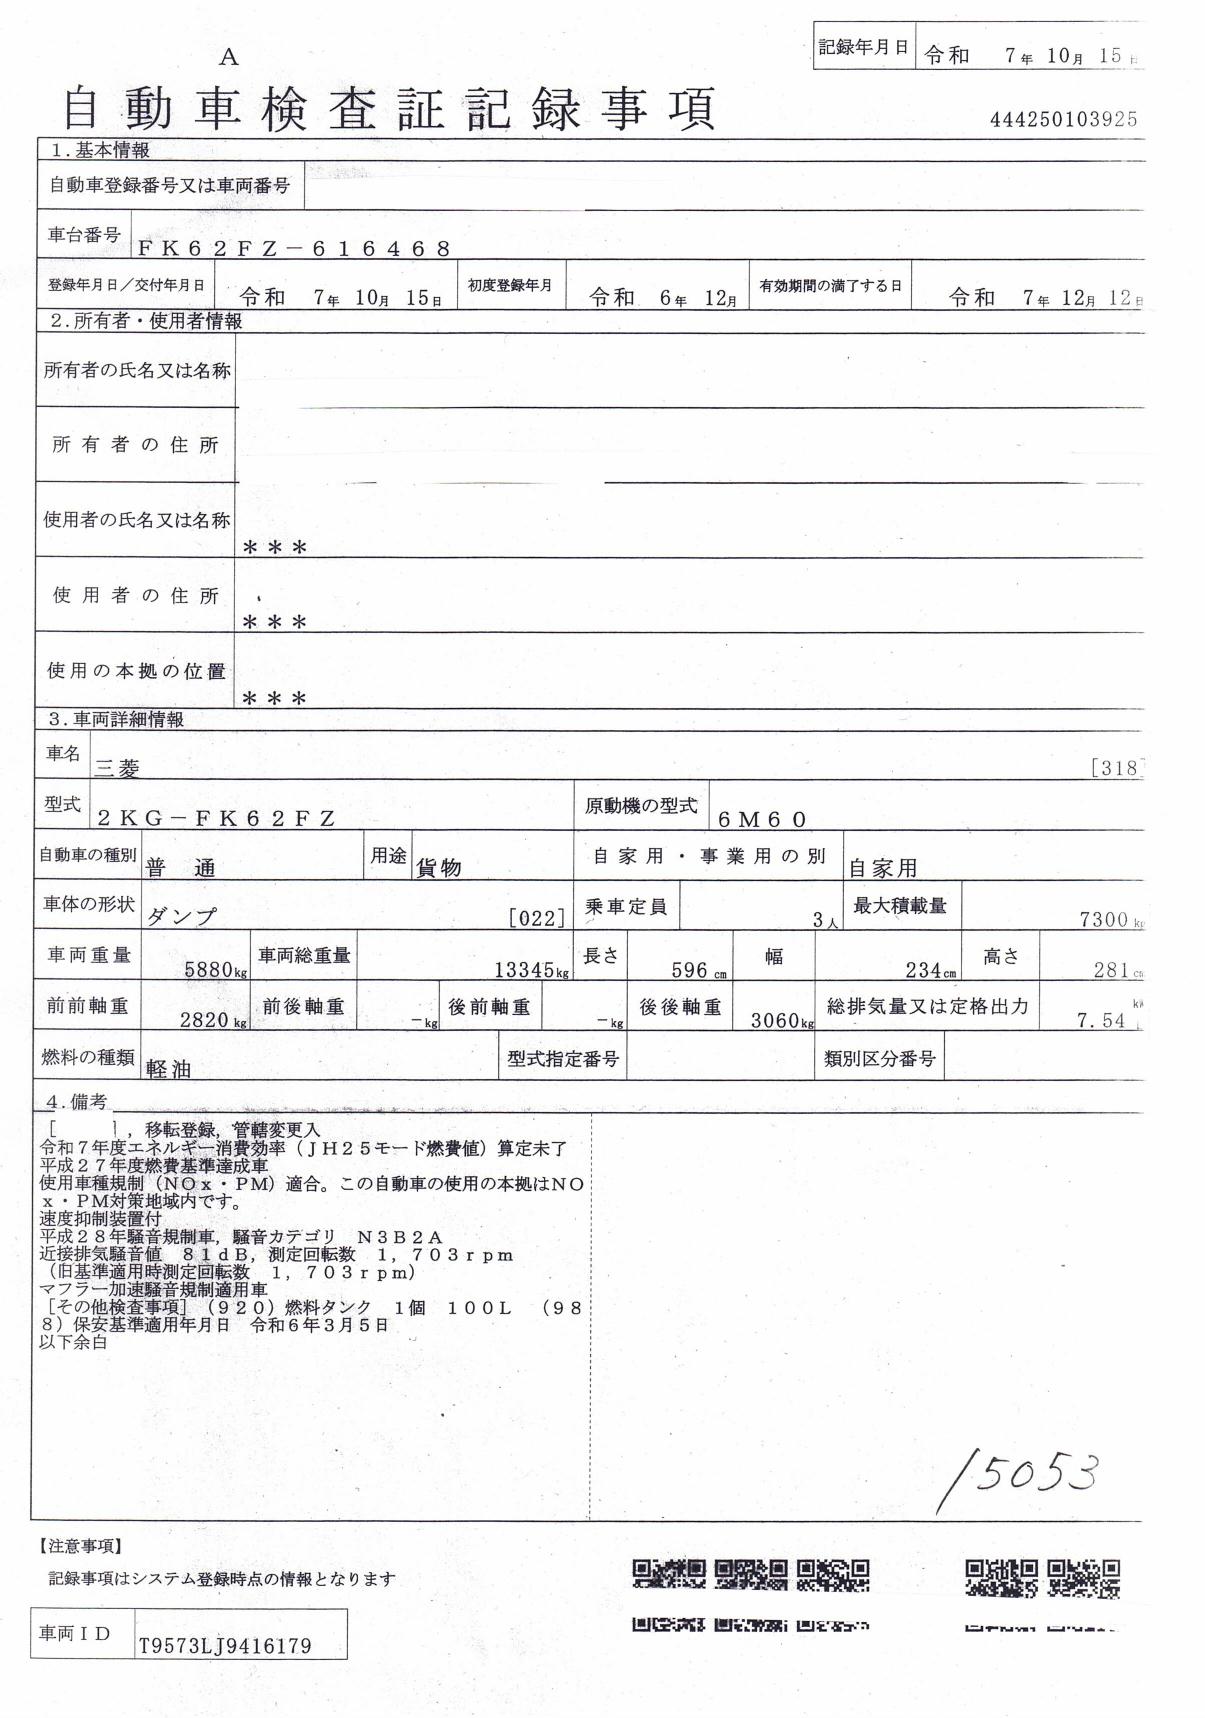 記録年月日 令和 7年 10月 15日
A
自動車検査証記録事項
444250103925
1.基本情報
自動車登録番号又は車両番号
車台番号 FK62FZ-616468
登録年月日/交付年月日 令和 7年 10月 15日 初度登録年月 令和 6年 12月 有効期間の満了する日 令和 7年 12月 12日
2.所有者・使用者情報
所有者の氏名又は名称
所有者の住所
使用者の氏名又は名称 ***
使用者の住所 ***
使用の本拠の位置 ***
3.車両詳細情報
車名 三菱 [318]
型式 2KG-FK62FZ 原動機の型式 6M60
自動車の種別 普通 用途 貨物 自家用・事業用の別 自家用
車体の形状 ダンプ [022] 乗車定員 3人 最大積載量 7300kg
車両重量 5880kg 車両総重量 13345kg 長さ 596cm 幅 234cm 高さ 281cm
前前軸重 2820kg 前後軸重 -kg 後前軸重 -kg 後後軸重 3060kg 総排気量又は定格出力 7.54 kW
燃料の種類 軽油 型式指定番号 類別区分番号
4.備考
[ ],移転登録,管轄変更入
令和7年度エネルギー消費効率(JH25モード燃費値)算定未了
平成27年度燃費基準達成車
使用車種規制(NOx・PM)適合。この自動車の使用の本拠はNO
x・PM対策地域内です。
速度抑制装置付
平成28年騒音規制車,騒音カテゴリ N3B2A
近接排気騒音値 81dB,測定回転数 1,703rpm
(旧基準適用時測定回転数 1,703rpm)
マフラー加速騒音規制適用車
[その他検査事項](920)燃料タンク 1個 100L (98
8)保安基準適用年月日 令和6年3月5日
以下余白
15053
【注意事項】
記録事項はシステム登録時点の情報となります
車両ID T9573LJ9416179